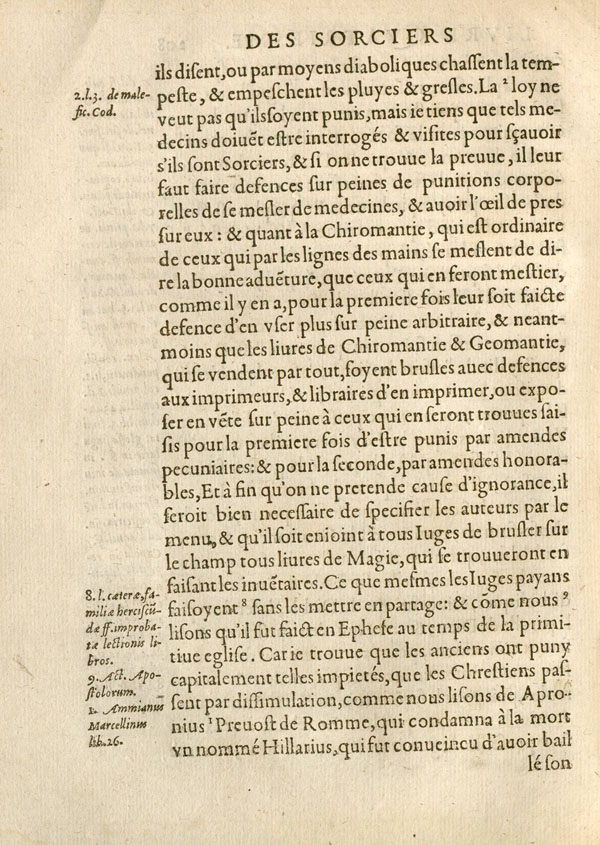 DES SORCIERS
ils disent, ou par moyens diaboliques chassent la tem-
peste, & empeschent les pluyes & gresles. La ² loy ne
veut pas qu'ils soyent punis, mais ie tiens que tels me-
decins doiuẽt estre interrogés & visites pour sçauoir
s'ils sont Sorciers, & si on ne trouue la preuue, il leur
faut faire defences sur peines de punitions corpo-
relles de se mesler de medecines, & auoir l'œil de pres
sur eux : & quant à la Chiromantie, qui est ordinaire
de ceux qui par les lignes des mains se meslent de di-
re la bonne aduẽture, que ceux qui en feront mestier,
comme il y en a, pour la premiere fois leur soit faicte
defence d'en vser plus sur peine arbitraire, & neant-
moins que les liures de Chiromantie & Geomantie,
qui se vendent par tout, soyent brusles auec defences
aux imprimeurs, & libraires d'en imprimer, ou expo-
ser en vẽte sur peine à ceux qui en seront trouues sai-
sis pour la premiere fois d'estre punis par amendes
pecuniaires: & pour la seconde, par amendes honora-
bles, Et à fin qu'on ne pretende cause d'ignorance, il
seroit bien necessaire de specifier les auteurs par le
menu, & qu'il soit enioint à tous Iuges de brusler sur
le champ tous liures de Magie, qui se trouueront en
faisant les inuẽtaires. Ce que mesmes les Iuges payans
faisoyent ⁸ sans les mettre en partage: & cõme nous ⁹
lisons qu'il fut faict en Ephese au temps de la primi-
tiue eglise. Car ie trouue que les anciens ont puny
capitalement telles impietés, que les Chrestiens pas-
sent par dissimulation, comme nous lisons de Apro-
nius ¹ Preuost de Romme, qui condamna à la mort
vn nommé Hillarius, qui fut conueincu d'auoir bail
lé son
2.l.3. de male-
fic. Cod.
8. l. cæteræ, fa-
miliæ herciscũ-
dæ ff. improba-
tæ lectionis li-
bros.
9. Act. Apo-
stolorum.
1. Ammianus
Marcellinus
lib. 26.